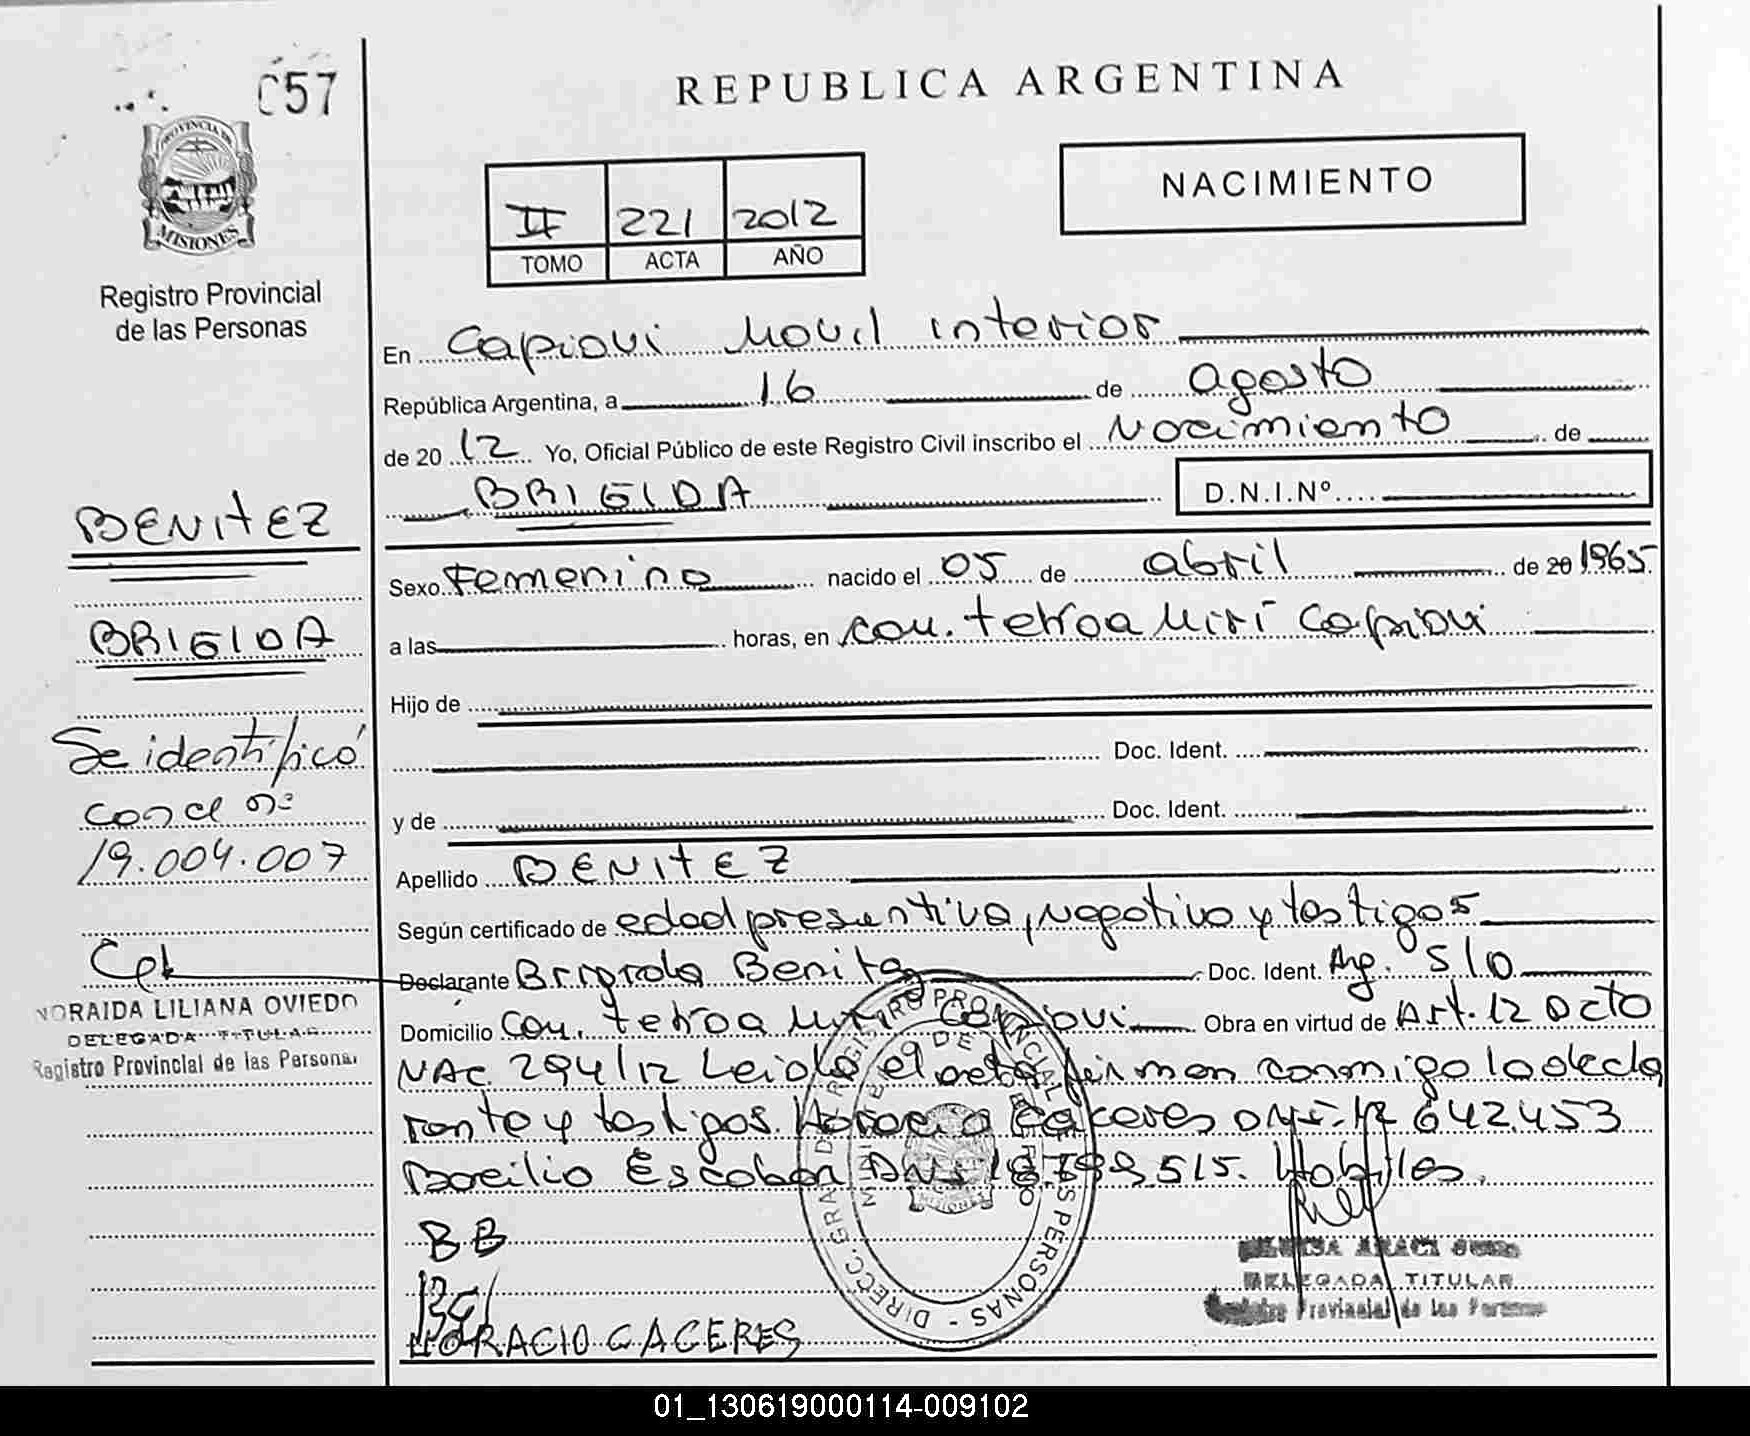 057
REPUBLICA ARGENTINA
NACIMIENTO
PROVINCIA DE
MISIONES
Registro Provincial
de las Personas
II 221 2012
TOMO ACTA AÑO
En Capiovi Movil interior
República Argentina, a 16 de agosto
de 20 12 Yo, Oficial Público de este Registro Civil inscribo el Nacimiento de
BRIGIDA D.N.I.Nº
BENITEZ
BRIGIDA
Se identificó
con el nº
19.004.007
NORAIDA LILIANA OVIEDO
DELEGADA TITULAR
Registro Provincial de las Personas
Sexo Femenino nacido el 05 de abril de 20 1965
a las horas, en com. tekoa Mirí Capiovi
Hijo de
Doc. Ident.
y de Doc. Ident.
Apellido BENITEZ
Según certificado de edad presuntiva, negativo y testigos
Declarante Brigida Benitez Doc. Ident. Arg. S/D
Domicilio Com. tekoa Miri Capiovi Obra en virtud de Art. 12 Dcto
NAC. 294/12 Leida el acta firman conmigo la decla
rante y testigos. Horacio Caceres DNI: 12 642.453
Basilio Escobar DNI 18.789.515. Habiles.
BB
HORACIO CACERES
DIRECC. GRAL. DE REGISTRO PROVINCIAL DE LAS PERSONAS
MISIONES
DELEGADA TITULAR
Registro Provincial de las Personas
01_130619000114-009102